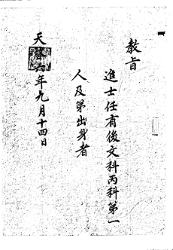 教旨
進士任有後文科丙科第一
人及第出身者
天啓六年九月十四日